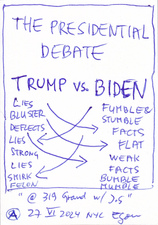 THE PRESIDENTIAL
DEBATE
TRUMP vs. BIDEN
LIES FUMBLE &
BLUSTER STUMBLE
DEFLECTS FACTS
LIES FLAT
STRONG WEAK
LIES FACTS
SMIRK BUMBLE
FELON MUMBLE
"@ 319 Grand w/ J.S"
A 27 VI 2024 NYC